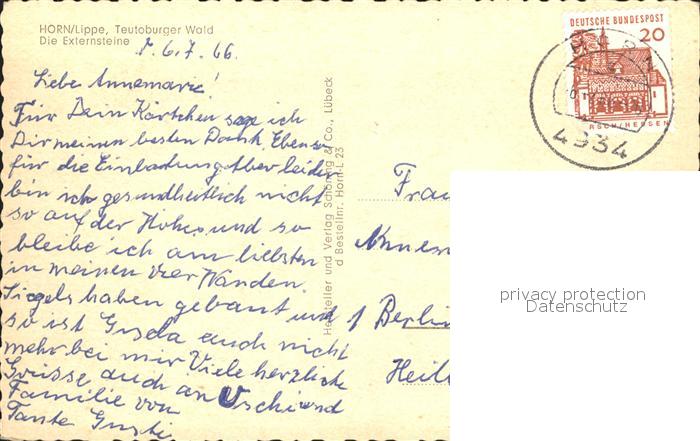 HORN/Lippe, Teutoburger Wald
Die Externsteine
6.7.66.
Liebe Annemarie!
Für Dein Kärtchen sage ich
Dir meinen besten Dank Ebenso
für die Einladung Aber leider
bin ich gesundheitlich nicht
so auf der Höhe und so
bleibe ich am liebsten
in meinen vier Wänden.
Siegels haben gebaut und
so ist Gisela auch nicht
mehr bei mir Viele herzliche
Grüsse auch an Uschi und
Familie von
Tante Gusti
Hersteller und Verlag Schöning & Co., Lübeck
d Bestellnr. Horn-L 23
DEUTSCHE BUNDESPOST
20
RSCH/HESSEN
4934
Frau
Annem
1 Berlin
Heil
privacy protection
Datenschutz